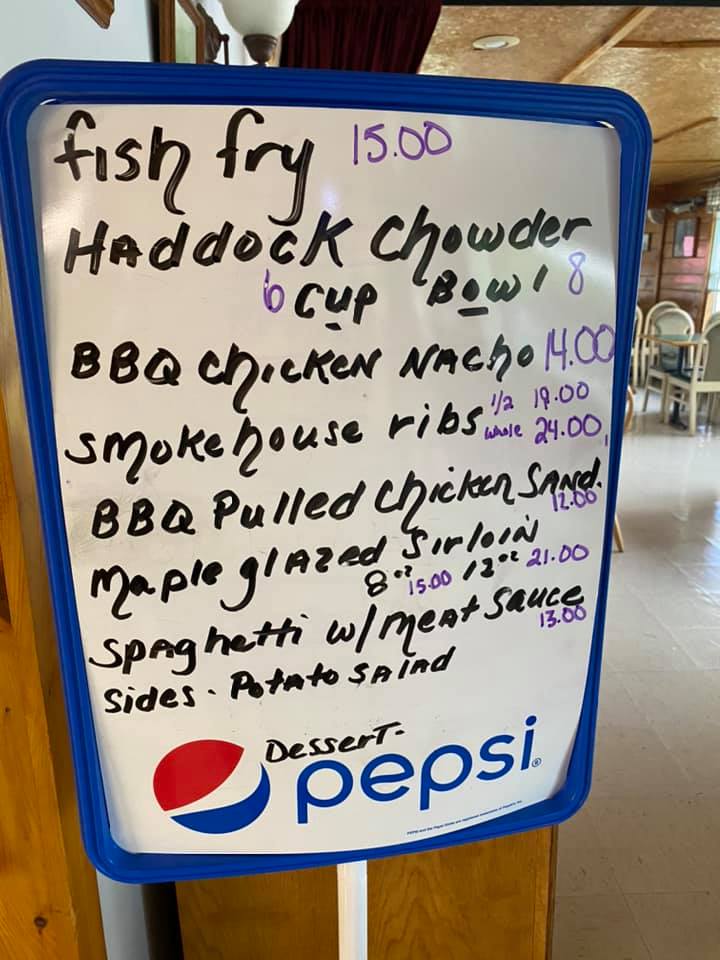 fish fry 15.00
HAddock Chowder
6 cup Bowl 8
BBQ chicken NAcho 14.00
smokehouse ribs 1/2 19.00
whole 24.00
BBQ Pulled Chicken SANd.
12.00
Maple glAzed Sirloin
8oz 15.00 12oz 21.00
SpAghetti w/ MeAt Sauce
13.00
Sides - PotAto SAlAd
DesserT-
pepsi